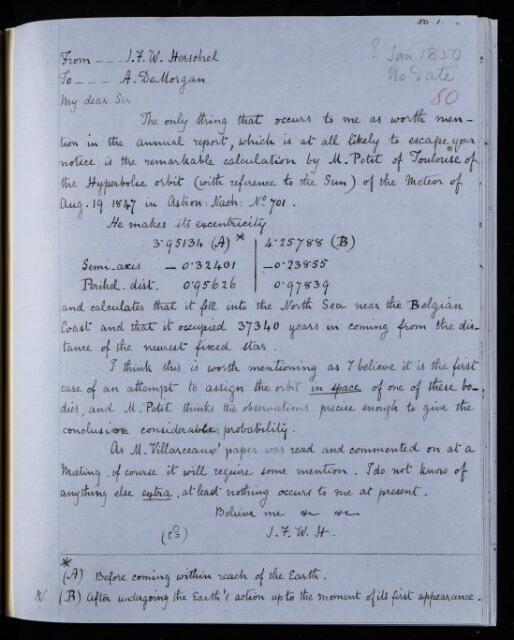 50.1.
From --- J.F.W. Herschel
? Jan 1850
To --- A. DeMorgan
No date
50
My dear Sir
The only thing that occurs to me as worth men-
tion in the annual report, which is at all likely to escape your
notice is the remarkable calculation by M. Petit of Toulouse of
the Hyperbolic orbit (with reference to the Sun) of the Meteor of
Aug. 19 1847 in Astron: Nach: No 701.
He makes its excentricity
3.95134 (A) * | 4.25788 (B)
Semi-axis - 0.32401 | -0.23855
Perihel. dist. 0.95626 | 0.97839
and calculates that it fell into the North Sea near the Belgian
Coast and that it occupied 37340 years in coming from the dis-
tance of the nearest fixed star.
I think this is worth mentioning as I believe it is the first
case of an attempt to assign the orbit in space of one of these bo-
dies, and M. Petit thinks the observations precise enough to give the
conclusion considerable probability.
As M. Villarceaux' paper was read and commented on at a
Meeting, of course it will require some mention. I do not know of
anything else extra, at least nothing occurs to me at present.
Believe me &c &c
J.F.W.H.
*
(A) Before coming within reach of the Earth.
(B) After undergoing the Earth's action up to the moment of its first appearance.